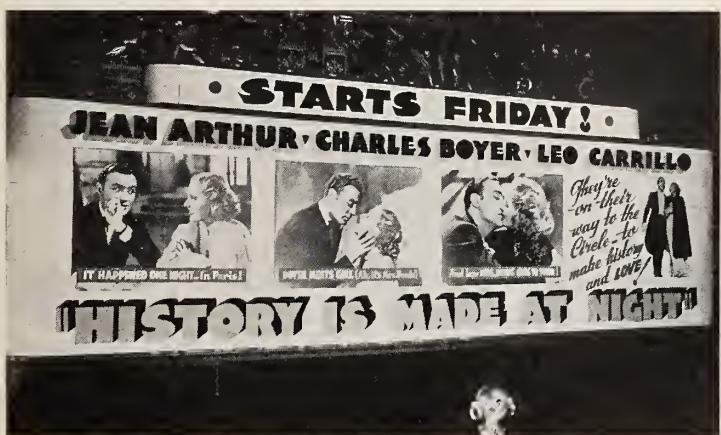 • STARTS FRIDAY! •
JEAN ARTHUR • CHARLES BOYER • LEO CARRILLO
IT HAPPENED ONE NIGHT... (in Paris)
BOYER MEETS GIRL
They're
-on-their
way to the
Circle-to
make history
and LOVE!
"HISTORY IS MADE AT NIGHT"